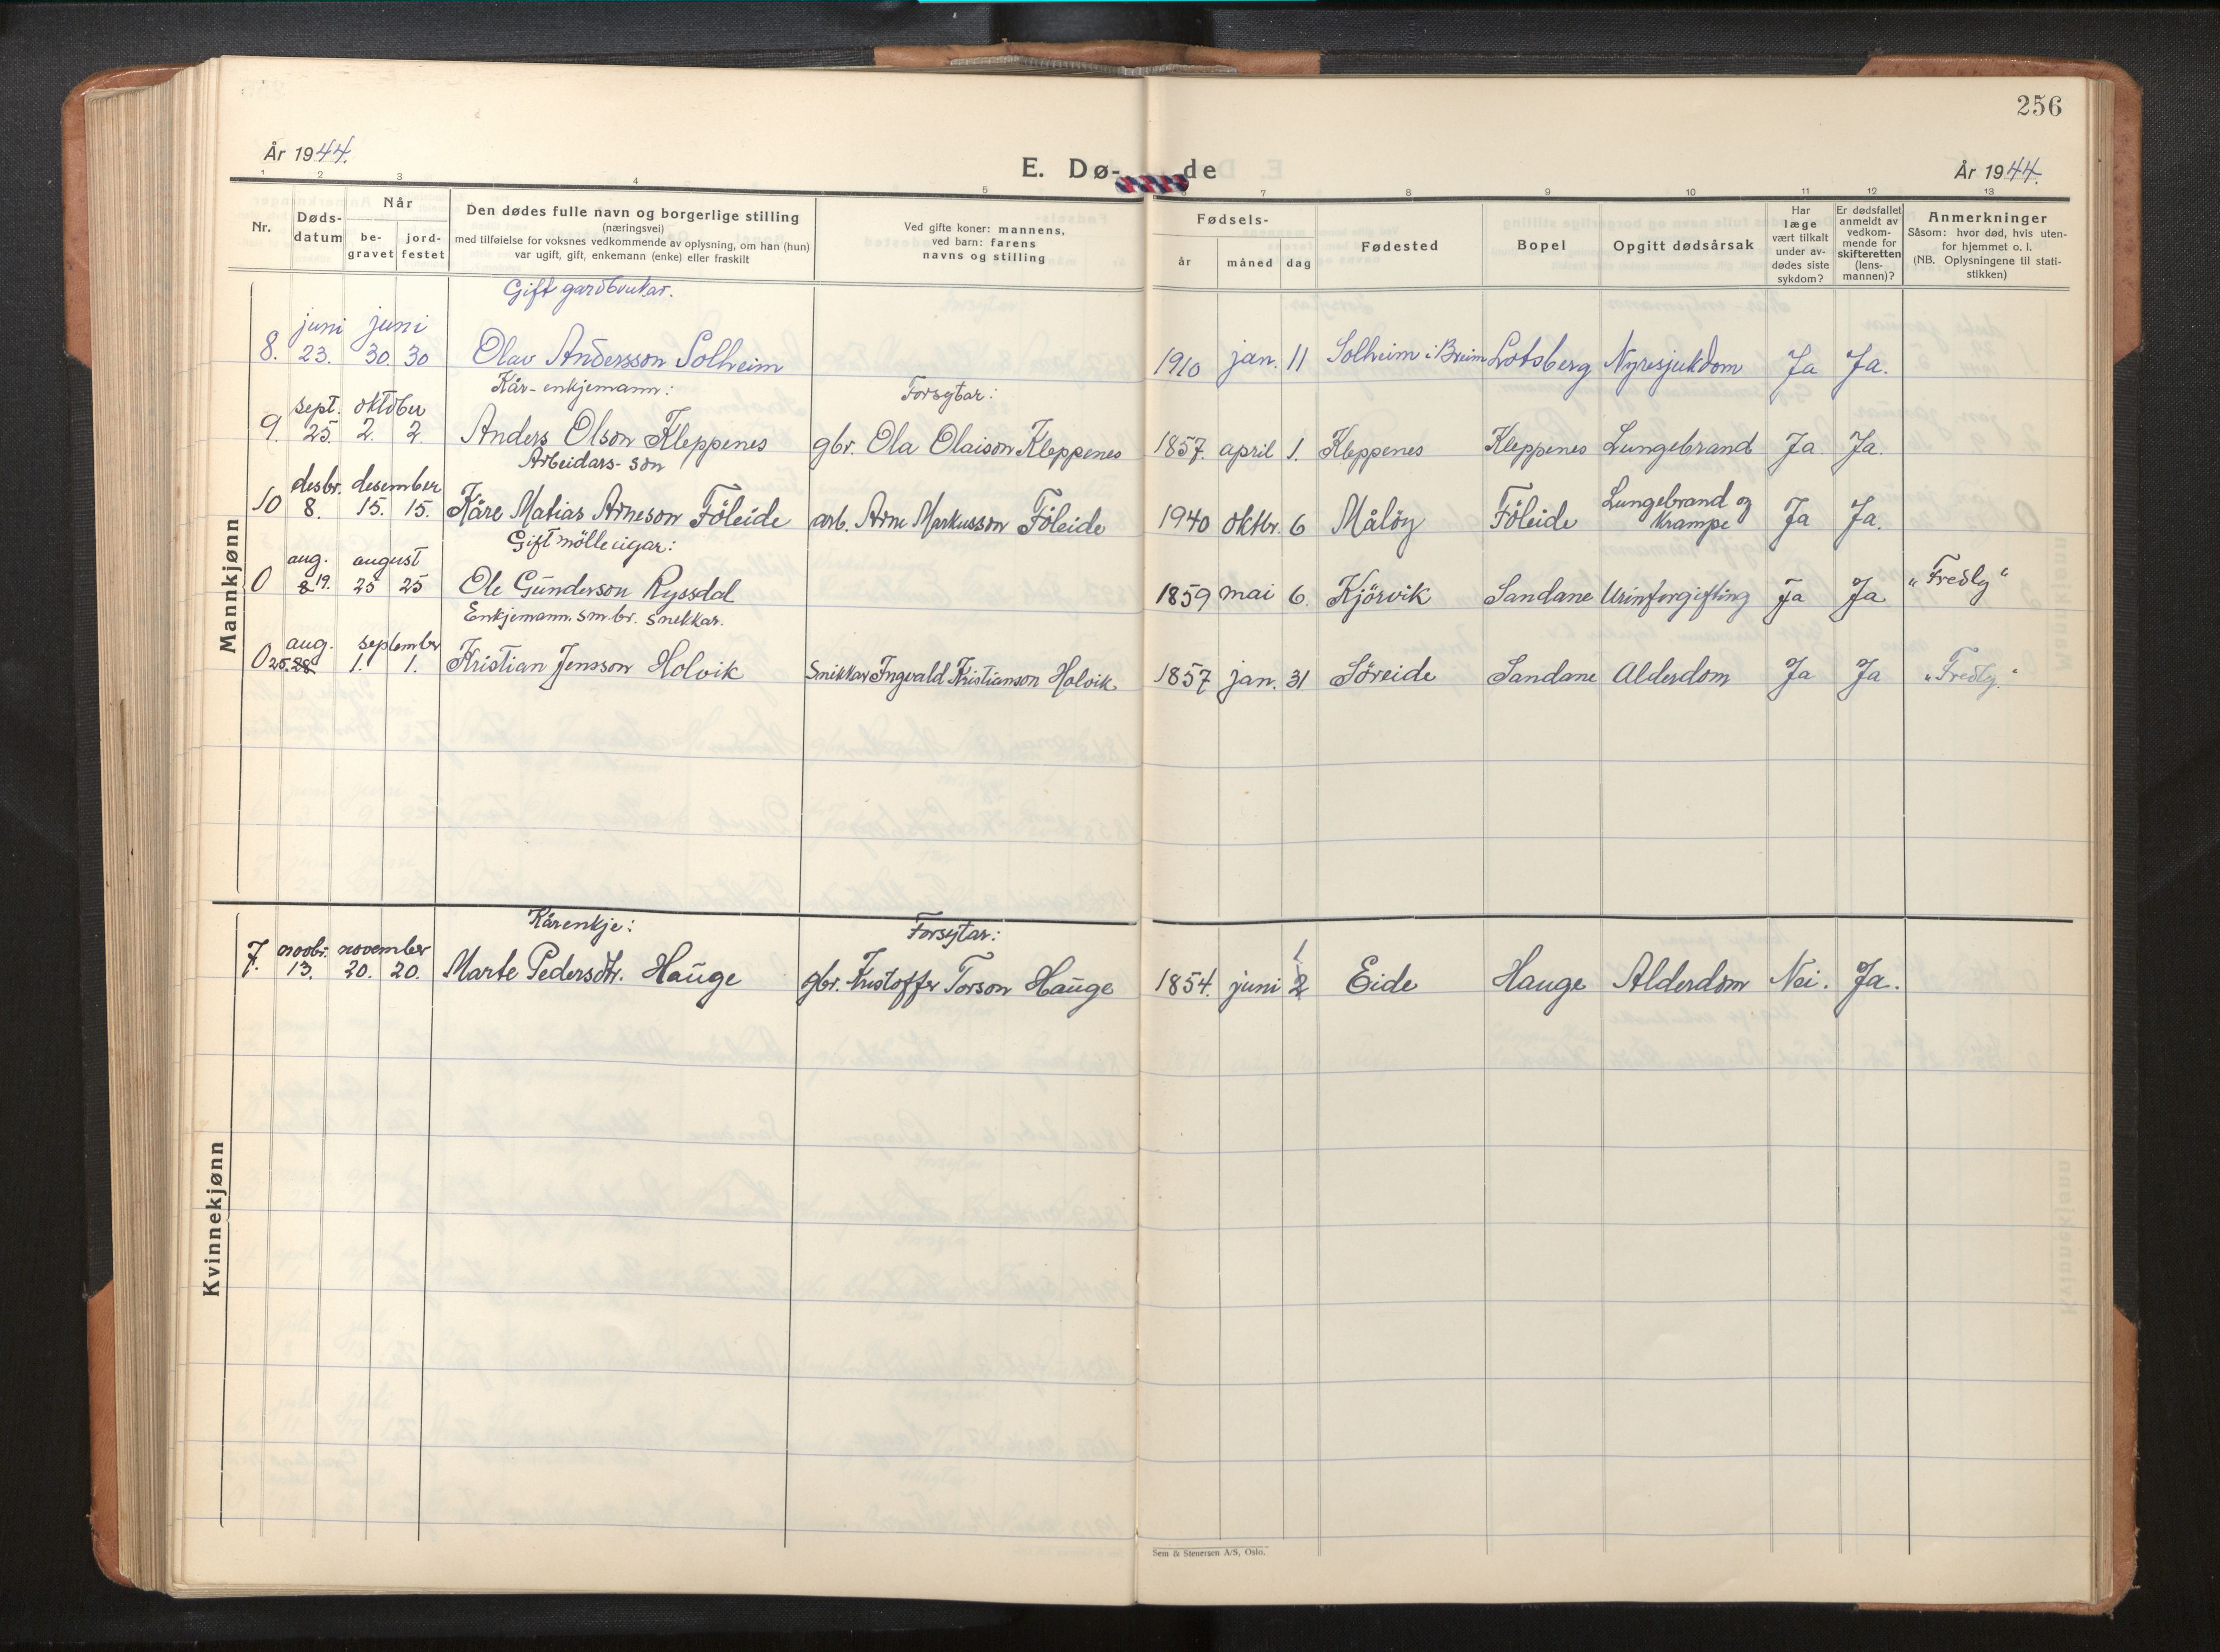 256
År 1944.
E. Dø- de
År 1944.
1 2 3 4 5 6 7 8 9 10 11 12 13
Nr.
Døds-
datum
Når
be-
gravet
jord-
festet
Den dødes fulle navn og borgerlige stilling
(næringsvei)
med tilføielse for voksnes vedkommende av oplysning, om han (hun)
var ugift, gift, enkemann (enke) eller fraskilt
Ved gifte koner: mannens,
ved barn: farens
navns og stilling
Fødsels-
år måned dag
Fødested
Bopel
Opgitt dødsårsak
Har
læge
vært tilkalt
under av-
dødes siste
sykdom?
Er dødsfallet
anmeldt av
vedkom-
mende for
skifteretten
(lens-
mannen)?
Anmerkninger
Såsom: hvor død, hvis uten-
for hjemmet o. l.
(NB. Oplysningene til stati-
stikken)
Mannkjønn
Gift gardbrukar.
juni juni
8. 23. 30. 30 Olav Andersson Solheim 1910 jan. 11 Solheim i Breim Lotsberg Nyresjukdom Ja Ja.
Kår-enkjemann: Forsytar:
sept. oktober
9. 25. 2. 2. Anders Olson Kleppenes gbr. Ola Olaison Kleppenes 1857. april 1. Kleppenes Kleppenes Lungebrand Ja Ja.
Arbeidars-son
desbr. desember
10 8. 15. 15. Kåre Matias Arneson Föleide arb. Arne Markusson Föleide 1940 oktbr. 6 Målöy Föleide Lungebrand og
krampe Ja Ja.
Gift mölleeigar:
aug. august
0 8 19. 25 25 Ole Gunderson Ryssdal 1859 mai 6. Kjörvik Sandane Urinforgifting Ja Ja "Fredlg"
Enkjemann. sm.br. snekkar.
aug. september
0 25. 28 1. 1. Kristian Jensson Holvik Snikkar Ingvald Kristianson Holvik 1857 jan. 31 Söreide Sandane Alderdom Ja Ja "Fredlg."
Kvinnekjønn
Kårenkje: Forsytar:
novbr. november
7. 13. 20. 20. Marte Pedersdtr. Hauge gbr. Kristoffer Torson Hauge 1854. juni 1 2 Eide Hauge Alderdom Nei. Ja.
Sem & Stenersen A/S, Oslo.